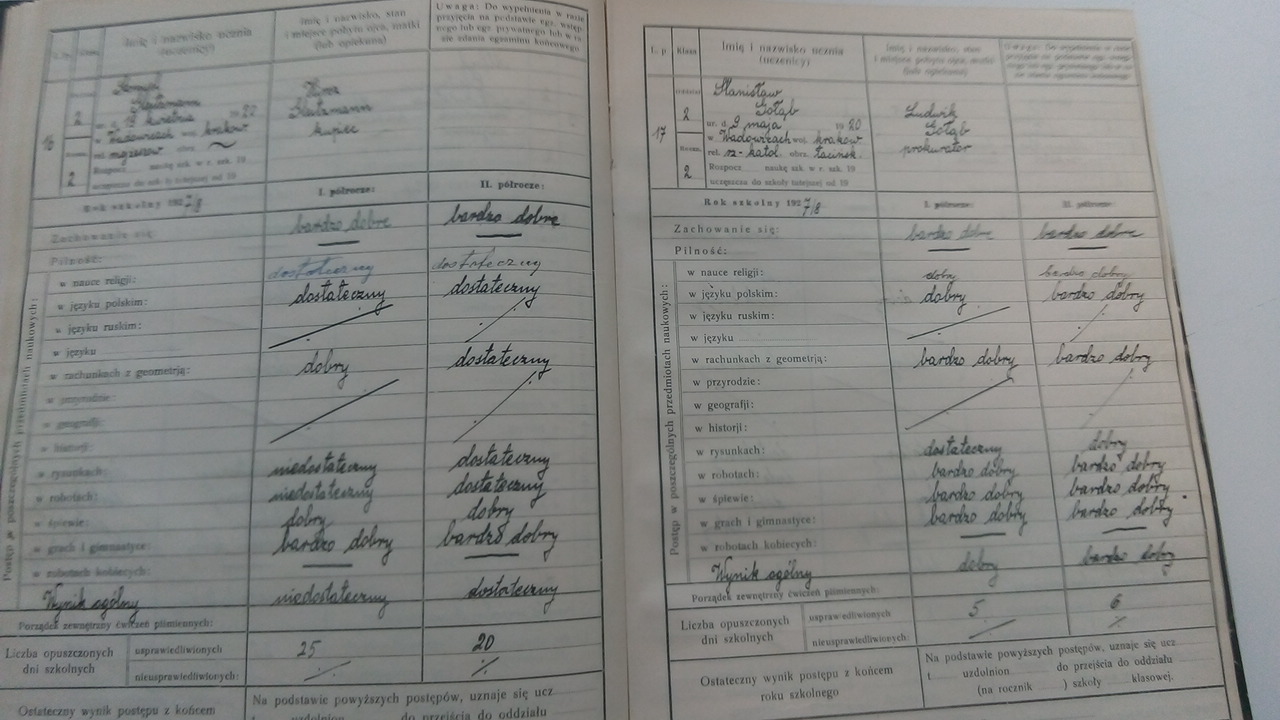 L. p.
Klasa
Imię i nazwisko ucznia
(uczenicy)
Imię i nazwisko, stan
i miejsce pobytu ojca, matki
(lub opiekuna)
Uwaga: Do wypełnienia w razie
przyjęcia na podstawie egz. wstęp-
nego lub egz. prywatnego lub w ra-
zie zdania egzaminu końcowego
16
2
2
ur. d. 19 kwietnia 1920
w Wadowicach woj. krakow
rel. mojżeszow. obrz.
Rozpocz. naukę szk. w r. szk. 19
uczęszcza do szkoły tutejszej od 19
kupiec
Rok szkolny 1927/8
I. półrocze:
II. półrocze:
Zachowanie się:
bardzo dobre
bardzo dobre
Pilność:
Postęp w poszczególnych przedmiotach naukowych:
w nauce religji:
dostateczny
dostateczny
w języku polskim:
dostateczny
dostateczny
w języku ruskim:
w języku
w rachunkach z geometrją:
dobry
dostateczny
w przyrodzie:
w geografji:
w historji:
w rysunkach:
niedostateczny
dostateczny
w robotach:
niedostateczny
dostateczny
w śpiewie:
dobry
dobry
w grach i gimnastyce:
bardzo dobry
bardzo dobry
w robotach kobiecych:
Wynik ogólny
niedostateczny
dostateczny
Porządek zewnętrzny ćwiczeń piśmiennych:
Liczba opuszczonych
dni szkolnych
usprawiedliwionych
25
20
nieusprawiedliwionych:
Ostateczny wynik postępu z końcem
Na podstawie powyższych postępów, uznaje się ucz
t uzdolnion do przejścia do oddziału
L. p.
Klasa
Imię i nazwisko ucznia
(uczenicy)
Imię i nazwisko, stan
i miejsce pobytu ojca, matki
(lub opiekuna)
17
2
2
Stanisław
Gołąb
ur. d. 9 maja 1920
w Wadowicach woj. krakow
rel. rz-katol. obrz. łacińsk.
Rozpocz. naukę szk. w r. szk. 19
uczęszcza do szkoły tutejszej od 19
Ludwik
Gołąb
prokurator
Rok szkolny 1927/8
I. półrocze:
II. półrocze:
Zachowanie się:
bardzo dobre
bardzo dobre
Pilność:
Postęp w poszczególnych przedmiotach naukowych:
w nauce religji:
dobry
bardzo dobry
w języku polskim:
dobry
bardzo dobry
w języku ruskim:
w języku
w rachunkach z geometrją:
bardzo dobry
bardzo dobry
w przyrodzie:
w geografji:
w historji:
w rysunkach:
dostateczny
dobry
w robotach:
bardzo dobry
bardzo dobry
w śpiewie:
bardzo dobry
bardzo dobry
w grach i gimnastyce:
bardzo dobry
bardzo dobry
w robotach kobiecych:
Wynik ogólny
dobry
bardzo dobry
Porządek zewnętrzny ćwiczeń piśmiennych:
Liczba opuszczonych
dni szkolnych
usprawiedliwionych
5
6
nieusprawiedliwionych:
Ostateczny wynik postępu z końcem
roku szkolnego
Na podstawie powyższych postępów, uznaje się ucz
t uzdolnion do przejścia do oddziału
(na rocznik ) szkoły klasowej.